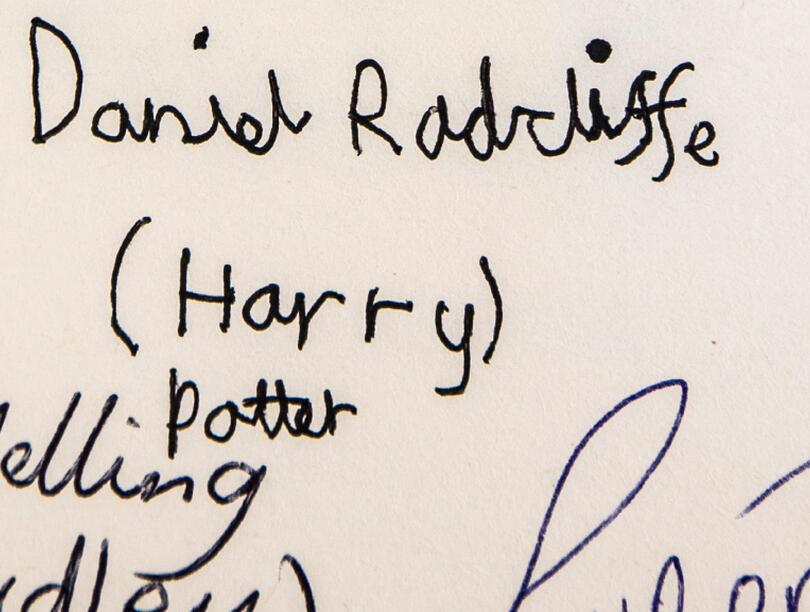 Daniel Radcliffe
(Harry)
Potter
elling
udley)